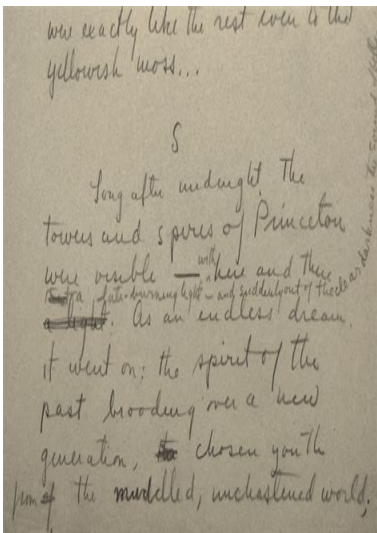 were exactly like the rest even to the
yellowish moss...
S
Long after midnight. The
towers and spires of Princeton
were visible — with here and there
a late-burning light – and suddenly out of the clear darkness the sound of
. As an endless dream,
it went on; the spirit of the
past brooding over a new
generation, chosen youth
from the muddled, unchastened world,